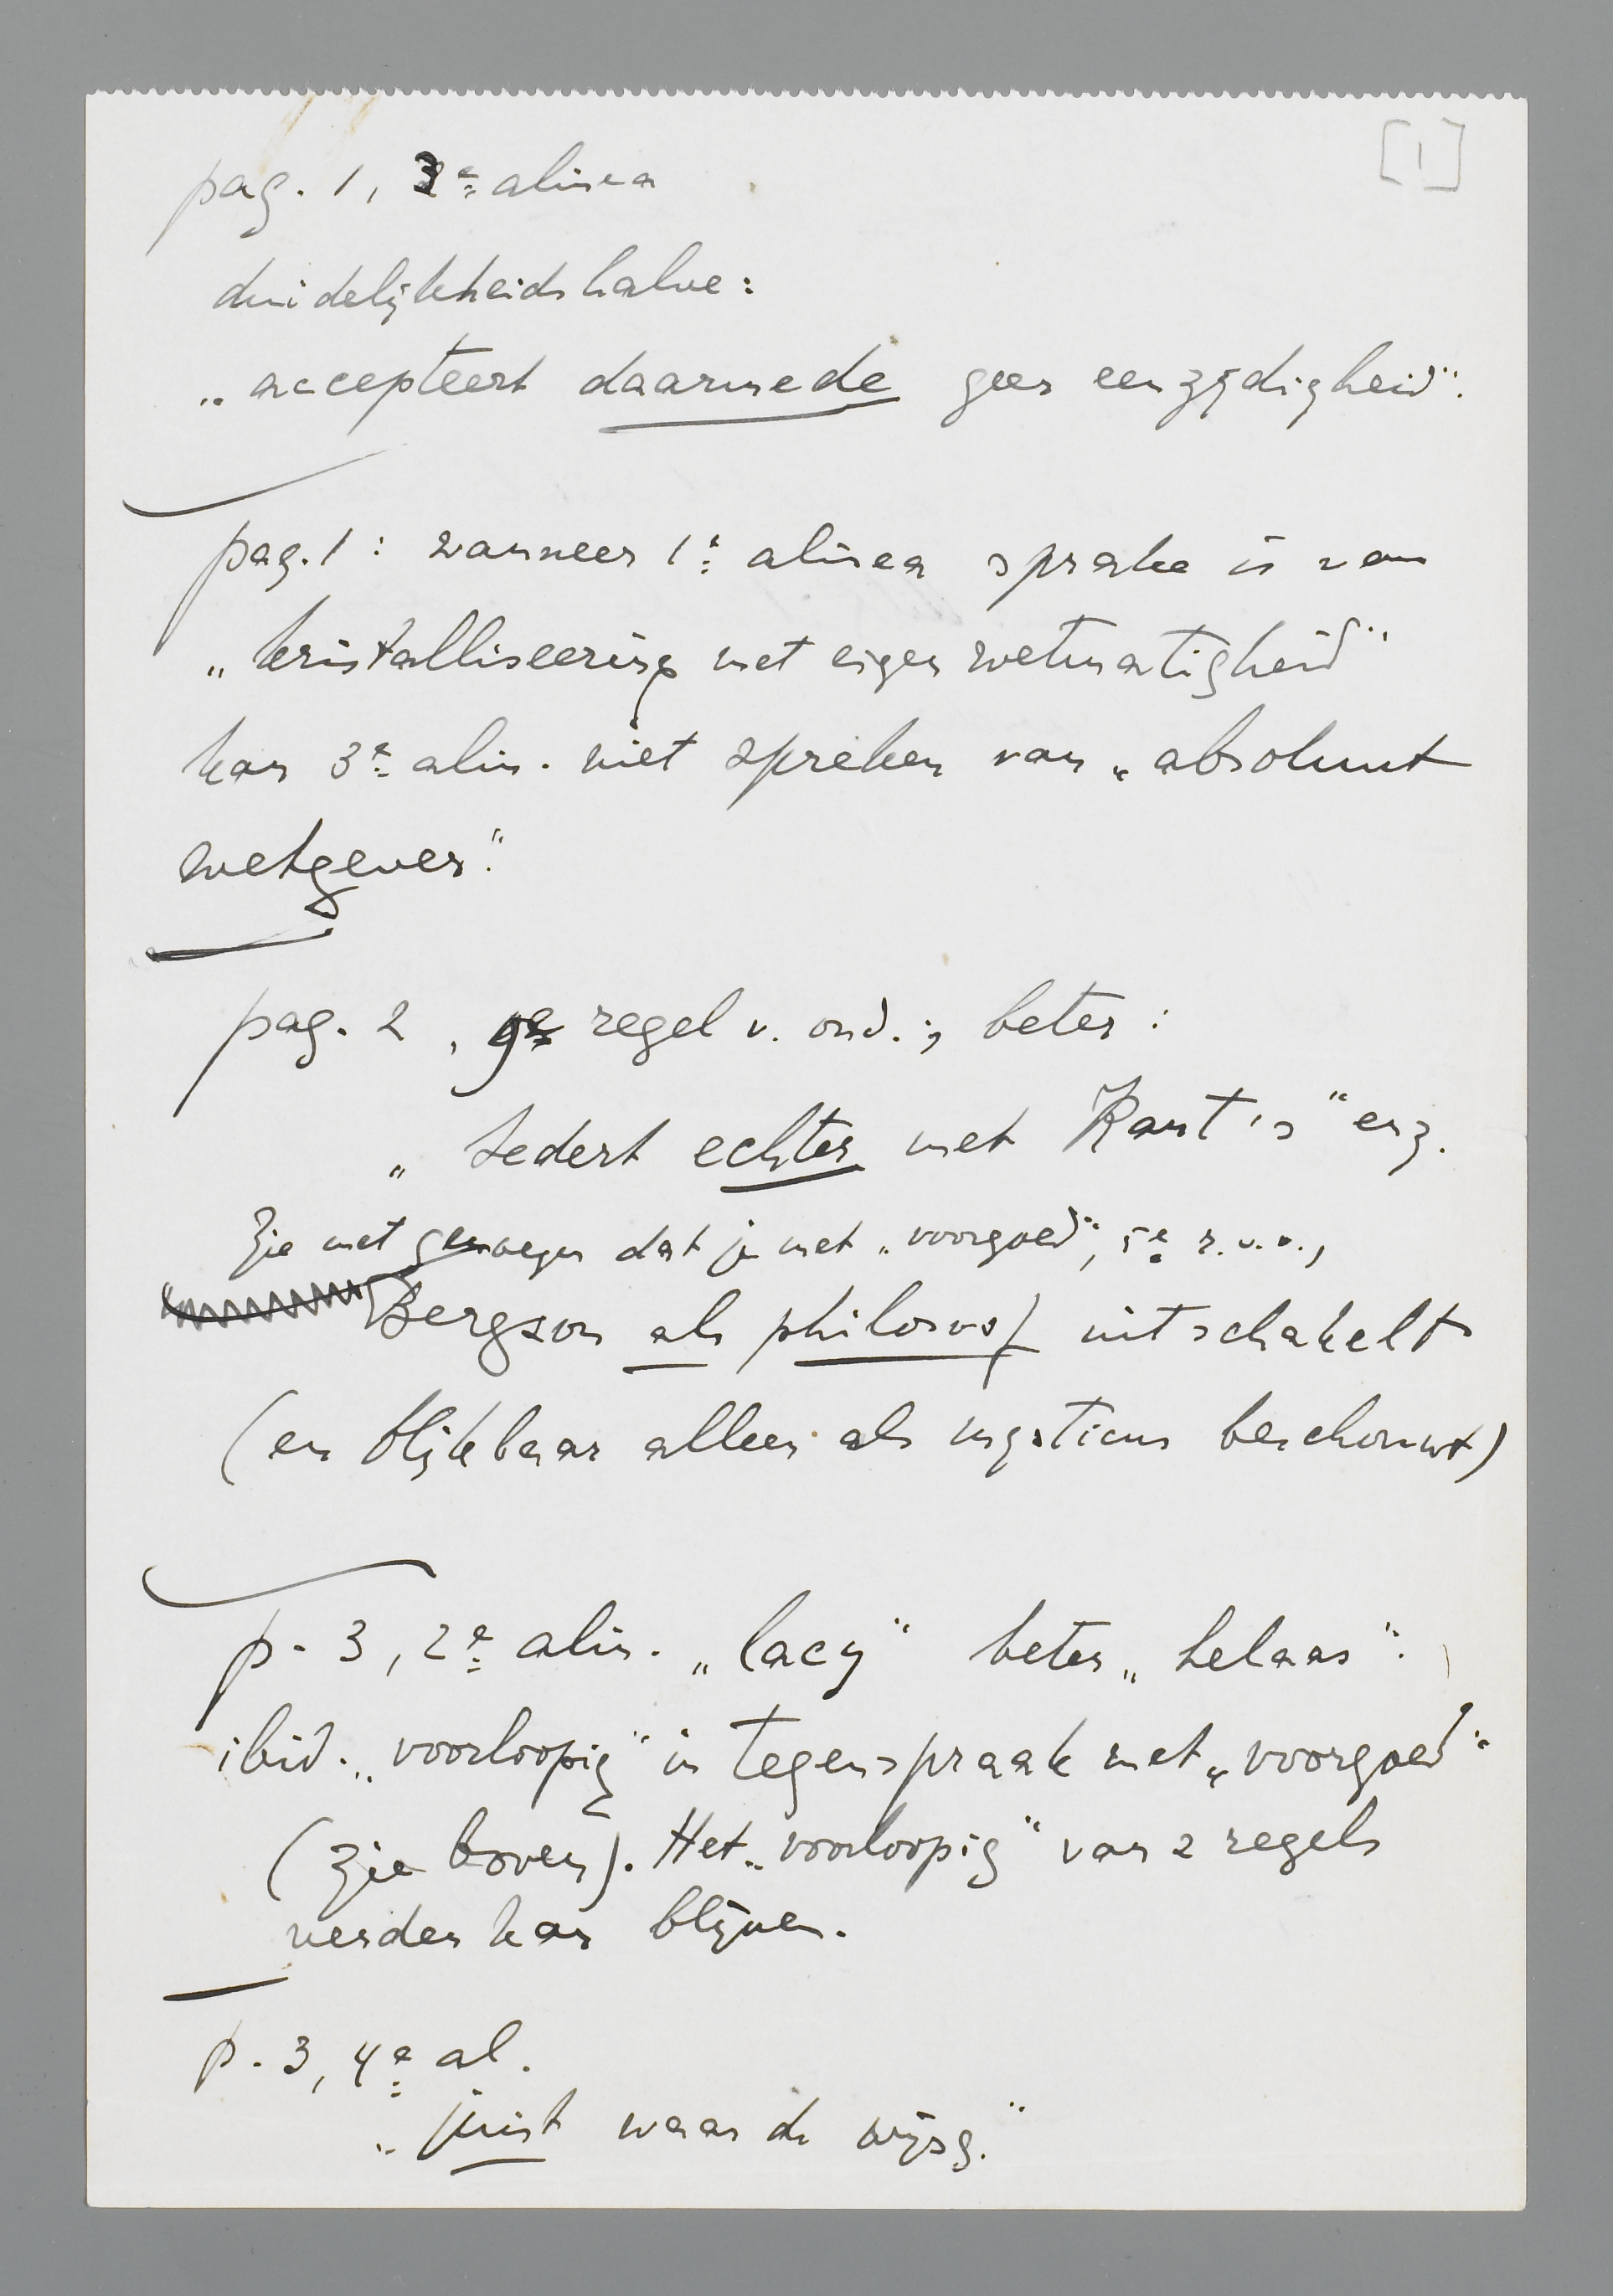 [1]
pag. 1, 3e alinea
duidelijkheidshalve:
„accepteert daarmede geen eenzijdigheid".
pag. 1: wanneer 1e alinea sprake is van
„kristalliseering met eigen wetmatigheid"
kan 3e alin. niet spreken van „absoluut
wetgever".
pag. 2, 9e regel v. ond.; beter:
„Sedert echter met Kant's" enz.
Zie met genoegen dat je met „voorgoed", 5e r.v.o.,
Bergson als philosoof uitschakelt
(en blijkbaar alleen als mysticus beschouwt)
p. 3, 2e alin. „lacy" beter „helaas".
ibid. „voorloopig" in tegenspraak met „voorgoed"
(zie boven). Het „voorloopig" van 2 regels
verder kan blijven.
p. 3, 4e al.
„juist waar de wijsg."